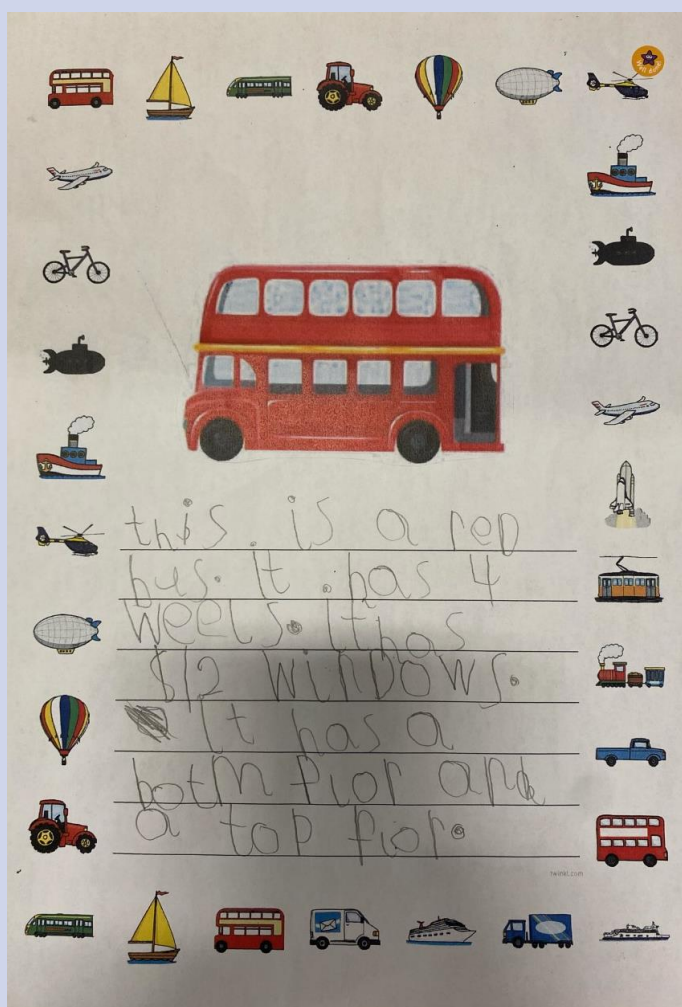 this. is a reD
bus. It. has 4
weels. Ithas
$12 winDows.
It has a
botm flor and
a top flor.
twinkl.com